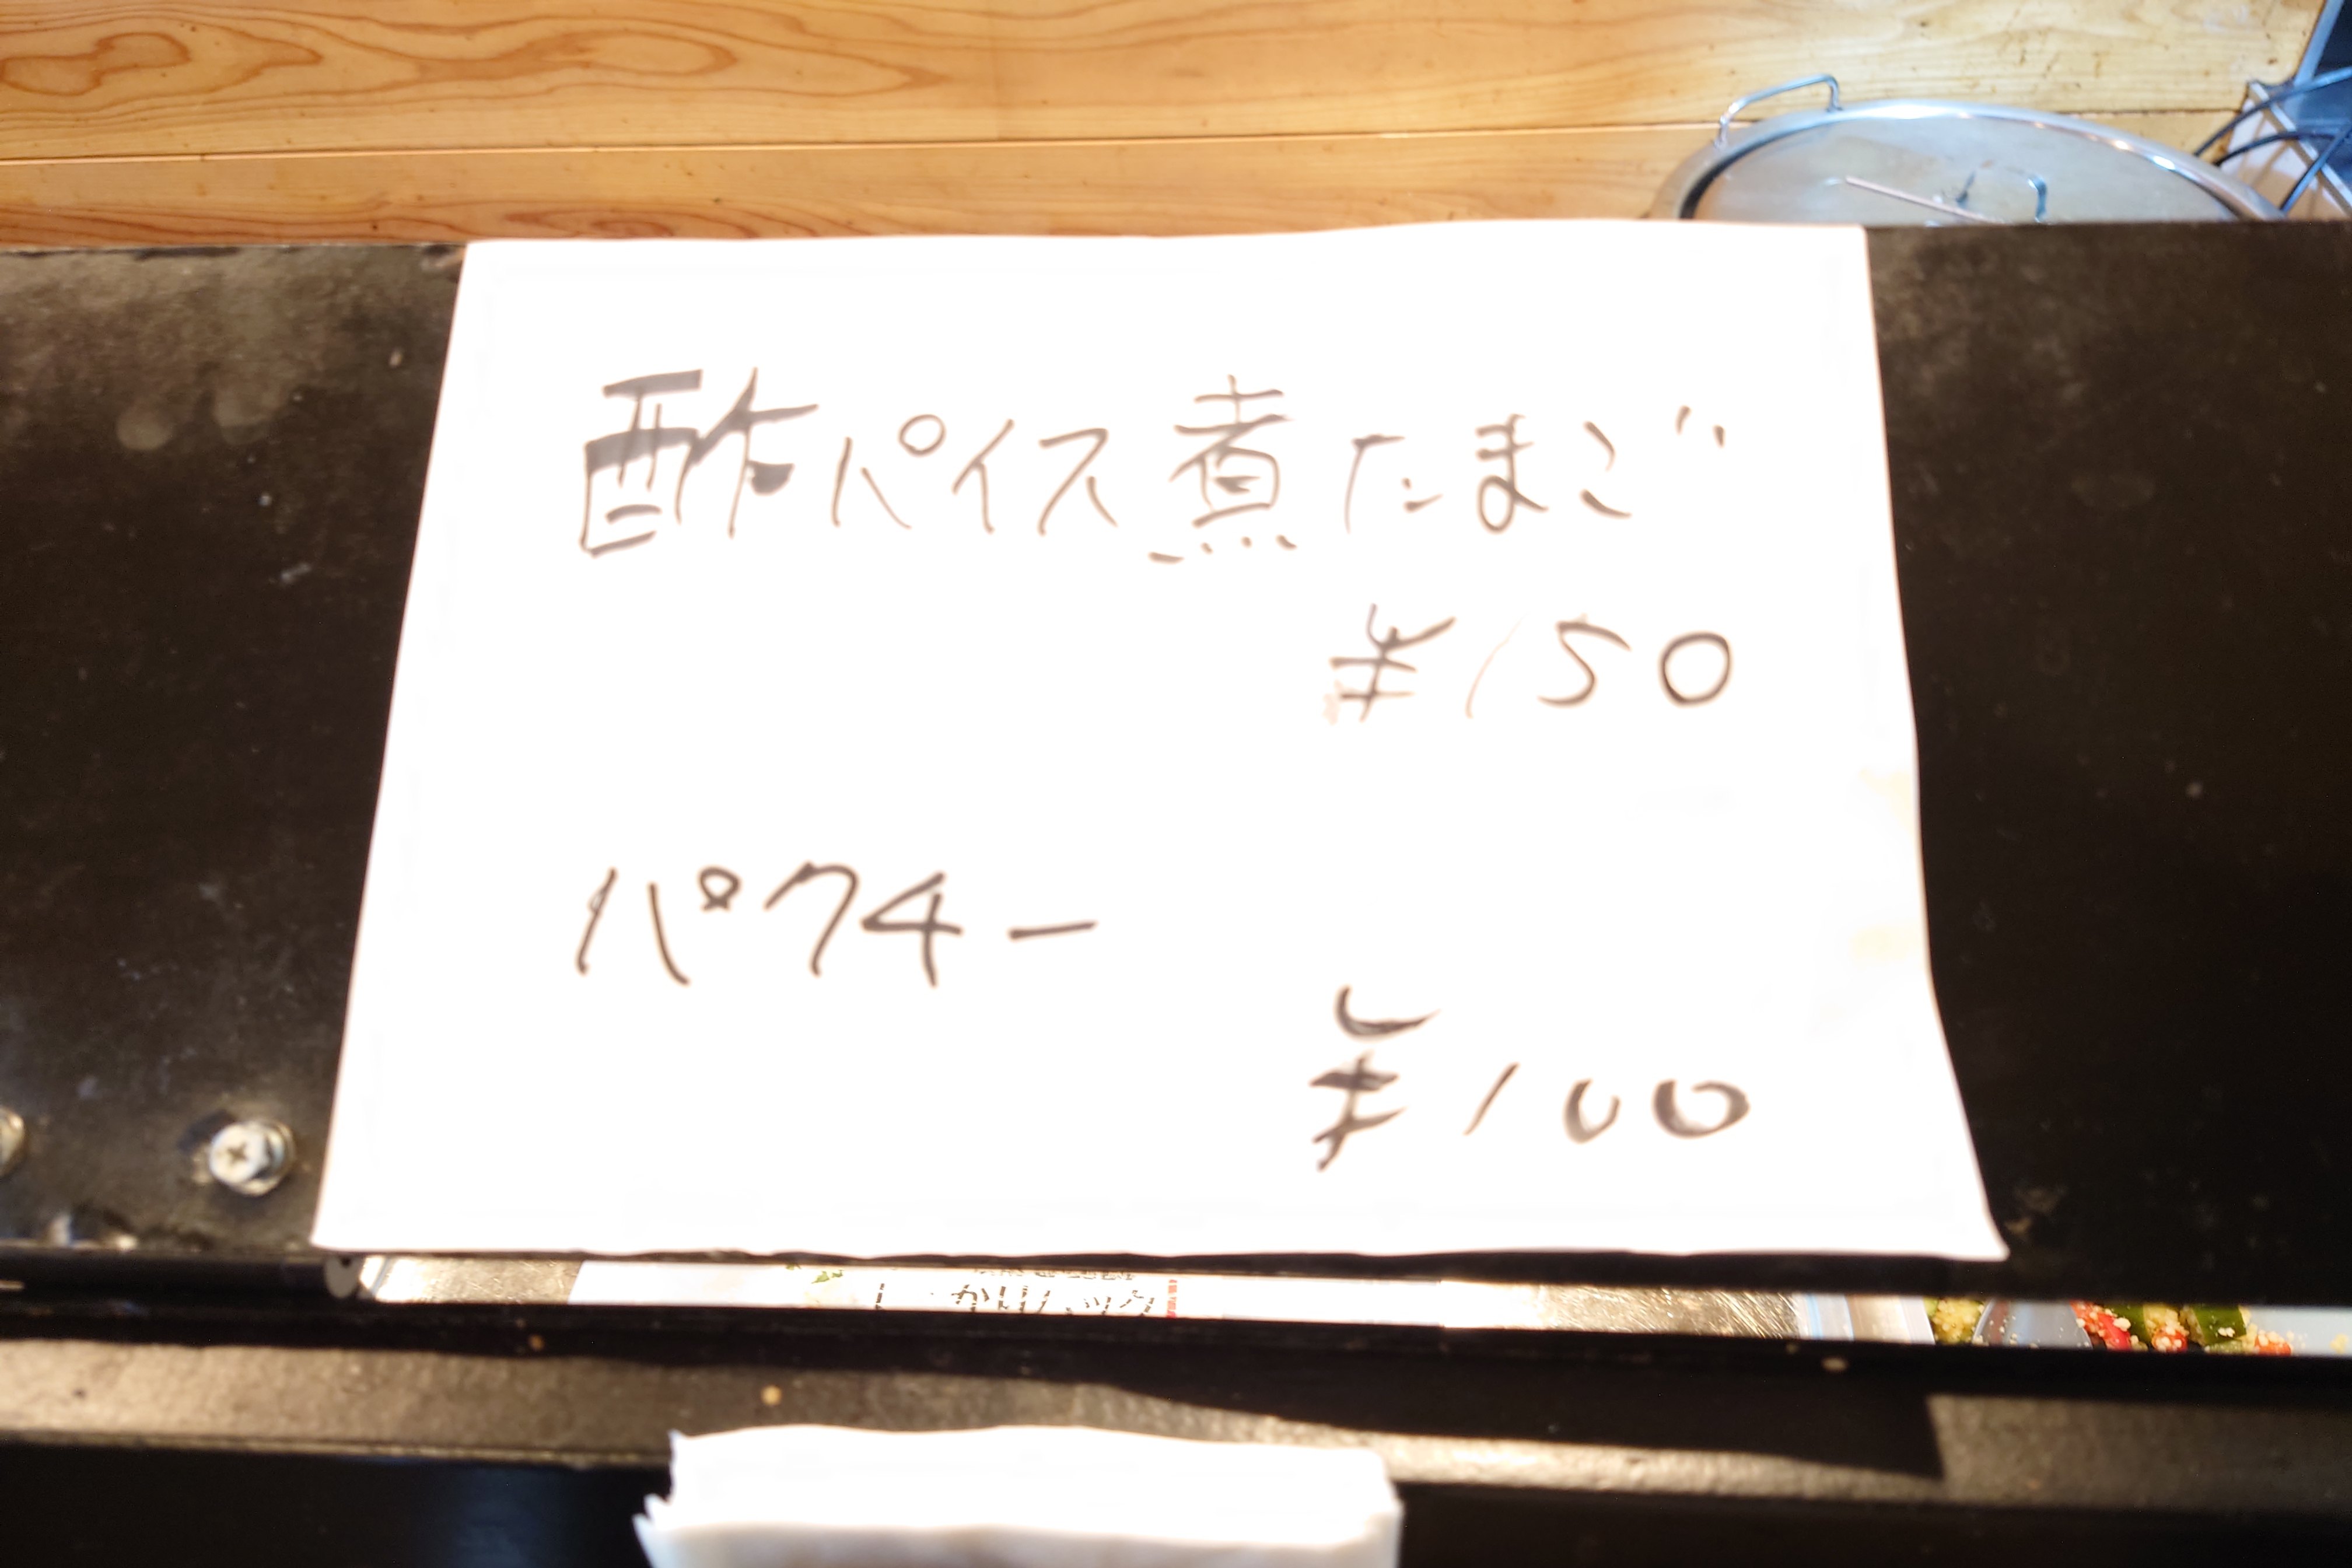 酢パイス煮たまご
¥150
パクチー
¥100